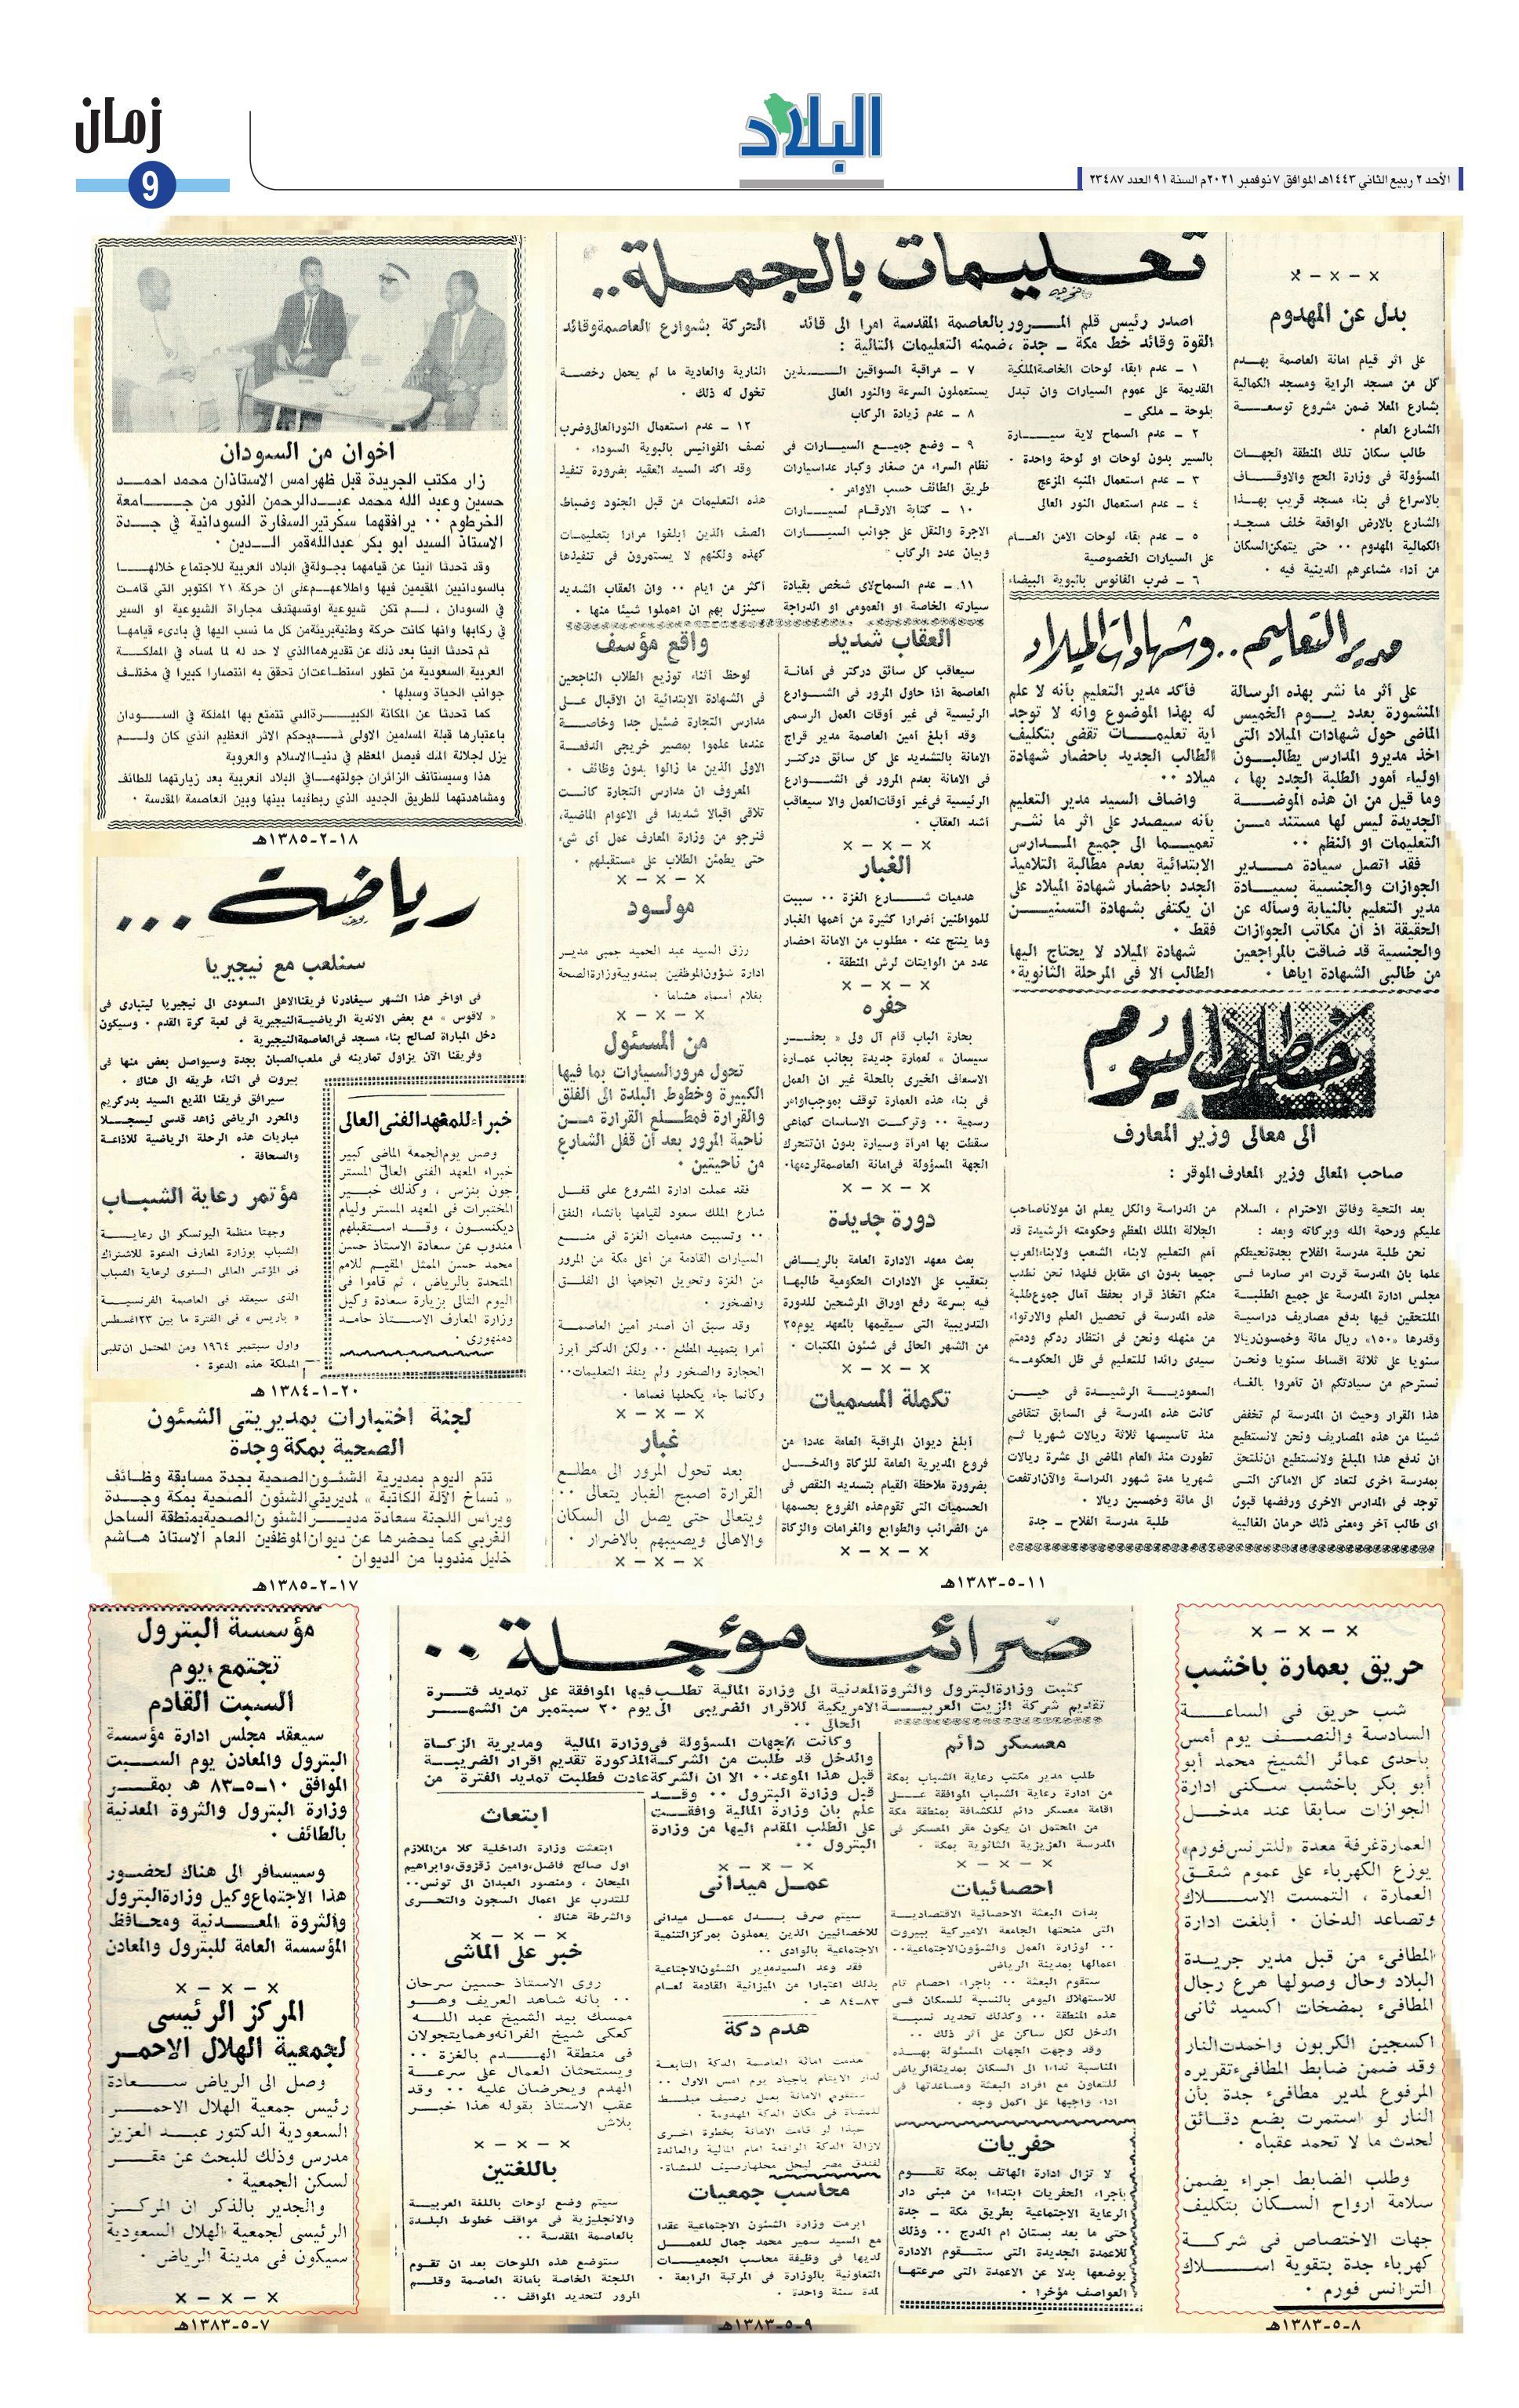 زمان
9
البلاد
الأحد ٢ ربيع الثاني ١٤٤٣هـ الموافق ٧ نوفمبر ٢٠٢١م السنة ٩١ العدد ٢٣٤٨٧
× – × – ×
بدل عن المهدوم
على اثر قيام امانة العاصمة بهدم
كل من مسجد الراية ومسجد الكمالية
بشارع المعلا ضمن مشروع توسعة
الشارع العام .
طالب سكان تلك المنطقة الجهات
المسؤولة فى وزارة الحج والاوقاف
بالاسراع فى بناء مسجد قريب بهذا
الشارع بالارض الواقعة خلف مسجد
الكمالية المهدوم .. حتى يتمكن السكان
من أداء مشاعرهم الدينية فيه .
تعليمات بالجملة ..
اصدر رئيس قلم المرور بالعاصمة المقدسة امرا الى قائد
القوة وقائد خط مكة – جدة ، ضمنه التعليمات التالية :
الحركة بشوارع العاصمة وقائد
١ – عدم ابقاء لوحات الخاصة الملكية
القديمة على عموم السيارات وان تبدل
بلوحة – ملكى –
٢ – عدم السماح لاية سيارة
بالسير بدون لوحات او لوحة واحدة .
٣ – عدم استعمال المنبه المزعج
٤ – عدم استعمال النور العالى
٥ – عدم بقاء لوحات الامن العام
على السيارات الخصوصية
٦ – ضرب الفانوس بالبوية البيضاء
٧ – مراقبة السواقين الذين
يستعملون السرعة والنور العالى
٨ – عدم زيادة الركاب
٩ – وضع جميع السيارات فى
نظام السراء من صغار وكبار عدا سيارات
طريق الطائف حسب الاوامر .
١٠ – كتابة الارقام لسيارات
الاجرة والنقل على جوانب السيارات
وبيان عدد الركاب
١١ – عدم السماح لاى شخص بقيادة
سيارته الخاصة او العمومى او الدراجة
النارية والعادية ما لم يحمل رخصة
تخول له ذلك .
١٢ – عدم استعمال النور العالى وضرب
نصف الفوانيس بالبوية السوداء .
وقد اكد السيد العقيد بضرورة تنفيذ
هذه التعليمات من قبل الجنود وضباط
الصف الذين ابلغوا مرارا بتعليمات
كهذه ولكنهم لا يستمرون فى تنفيذها
أكثر من ايام .. وان العقاب الشديد
سينزل بهم ان اهملوا شيئا منها .
مدير التعليم .. وشهادات الميلاد
على أثر ما نشر بهذه الرسالة
المنشورة بعدد يوم الخميس
الماضى حول شهادات الميلاد التى
اخذ مديرو المدارس يطالبون
اولياء أمور الطلبة الجدد بها ،
وما قيل من ان هذه الموضة
الجديدة ليس لها مستند من
التعليمات او النظم ..
فقد اتصل سيادة مدير
الجوازات والجنسية بسيادة
مدير التعليم بالنيابة وسأله عن
الحقيقة اذ أن مكاتب الجوازات
والجنسية قد ضاقت بالمراجعين
من طالبى الشهادة اياها .
فأكد مدير التعليم بأنه لا علم
له بهذا الموضوع وانه لا توجد
اية تعليمات تقضى بتكليف
الطالب الجديد باحضار شهادة
ميلاد ..
واضاف السيد مدير التعليم
بأنه سيصدر على اثر ما نشر
تعميما الى جميع المدارس
الابتدائية بعدم مطالبة التلاميذ
الجدد باحضار شهادة الميلاد على
ان يكتفى بشهادة التسنين
فقط .
شهادة الميلاد لا يحتاج اليها
الطالب الا فى المرحلة الثانوية .
خطابات اليوم
الى معالى وزير المعارف
صاحب المعالى وزير المعارف الموقر :
بعد التحية وفائق الاحترام ، السلام
عليكم ورحمة الله وبركاته وبعد :
نحن طلبة مدرسة الفلاح بجدة نحيطكم
علما بان المدرسة قررت امر صارما فى
مجلس ادارة المدرسة على جميع الطلبة
الملتحقين فيها بدفع مصاريف دراسية
وقدرها «١٥٠» ريال مائة وخمسون ريالا
سنويا على ثلاثة اقساط سنويا ونحن
نسترحم من سيادتكم ان تأمروا بالغاء
هذا القرار وحيث ان المدرسة لم تخفض
شيئا من هذه المصاريف ونحن لا نستطيع
ان ندفع هذا المبلغ ولا نستطيع ان نلتحق
بمدرسة اخرى لتعاد كل الاماكن التى
توجد فى المدارس الاخرى ورفضها قبول
اى طالب آخر ومعنى ذلك حرمان الغالبية
من الدراسة والكل يعلم ان مولانا صاحب
الجلالة الملك المعظم وحكومته الرشيدة قد
أمم التعليم لابناء الشعب ولابناء العرب
جميعا بدون اى مقابل فلهذا نحن نطلب
منكم اتخاذ قرار بحفظ آمال جموع طلبة
هذه المدرسة فى تحصيل العلم والارتواء
من منهله ونحن فى انتظار ردكم ودمتم
سيدى رائدا للتعليم فى ظل الحكومة
السعودية الرشيدة فى حين
كانت هذه المدرسة فى السابق تتقاضى
منذ تاسيسها ثلاثة ريالات شهريا ثم
تطورت منذ العام الماضى الى عشرة ريالات
شهريا مدة شهور الدراسة والآن ارتفعت
الى مائة وخمسين ريالا .
طلبة مدرسة الفلاح – جدة
العقاب شديد
سيعاقب كل سائق دركتر فى أمانة
العاصمة اذا حاول المرور فى الشوارع
الرئيسية فى غير أوقات العمل الرسمى
وقد أبلغ أمين العاصمة مدير قراج
الامانة بالتشديد على كل سائق دركتر
فى الامانة بعدم المرور فى الشوارع
الرئيسية فى غير أوقات العمل والا سيعاقب
أشد العقاب .
× – × – ×
الغبار
هدميات شارع الغزة .. سببت
للمواطنين أضرارا كثيرة من أهمها الغبار
وما ينتج عنه . مطلوب من الامانة احضار
عدد من الوايتات لرش المنطقة .
× – × – ×
حفره
بحارة الباب قام آل ولى « بحفر
سيسان » لعمارة جديدة بجانب عمارة
الاسعاف الخيرى بالمحلة غير ان العمل
فى بناء هذه العمارة توقف بموجب اوامر
رسمية .. وتركت الاساسات كماهى
سقطت بها امرأة وسيارة بدون ان تتحرك
الجهة المسؤولة فى امانة العاصمة لردمها .
× – × – ×
دورة جديدة
بعث معهد الادارة العامة بالرياض
بتعقيب على الادارات الحكومية طالبها
فيه بسرعة رفع اوراق المرشحين للدورة
التدريبية التى سيقيمها بالمعهد يوم ٢٥
من الشهر الحالى فى شئون المكتبات .
× – × – ×
تكملة المسميات
أبلغ ديوان المراقبة العامة عددا من
فروع المديرية العامة للزكاة والدخل
بضرورة ملاحظة القيام بتسديد النقص فى
الحسميات التى تقوم هذه الفروع بحسمها
من الضرائب والطوابع والغرامات والزكاة
× – × – ×
واقع مؤسف
لوحظ أثناء توزيع الطلاب الناجحين
فى الشهادة الابتدائية ان الاقبال على
مدارس التجارة ضئيل جدا وخاصة
عندما علموا بمصير خريجى الدفعة
الاولى الذين ما زالوا بدون وظائف .
المعروف ان مدارس التجارة كانت
تلاقى اقبالا شديدا فى الاعوام الماضية ،
فنرجو من وزارة المعارف عمل أى شىء
حتى يطمئن الطلاب على مستقبلهم .
× – × – ×
مولود
رزق السيد عبد الحميد جمبى مدير
ادارة شؤون الموظفين بمندوبية وزارة الصحة
بغلام أسماه هشاما .
× – × – ×
من المسئول
تحول مرور السيارات بما فيها
الكبيرة وخطوط البلدة الى الفلق
والقرارة فمطلع القرارة من
ناحية المرور بعد أن قفل الشارع
من ناحيتين .
فقد عملت ادارة المشروع على قفل
شارع الملك سعود لقيامها بانشاء النفق
.. وتسببت هدميات الغزة فى منع
السيارات القادمة من أعلى مكة من المرور
من الغزة وتحويل اتجاهها الى الفلق
والصخور .
وقد سبق أن أصدر أمين العاصمة
أمرا بتمهيد المطلع .. ولكن الدكتر أبرز
الحجارة والصخور ولم ينفذ التعليمات ..
وكأنما جاء يكحلها فعماها .
× – × – ×
غبار
بعد تحول المرور الى مطلع
القرارة اصبح الغبار يتعالى ..
ويتعالى حتى يصل الى السكان
والاهالى ويصيبهم بالاضرار .
× – × – ×
١١-٥-١٣٨٣هـ
اخوان من السودان
زار مكتب الجريدة قبل ظهر امس الاستاذان محمد احمد
حسين وعبد الله محمد عبد الرحمن النور من جامعة
الخرطوم .. يرافقهما سكرتير السفارة السودانية في جدة
الاستاذ السيد ابو بكر عبدالله قمر الدين .
وقد تحدثا الينا عن قيامهما بجولة في البلاد العربية للاجتماع خلالها
بالسودانيين المقيمين فيها واطلاعهم على ان حركة ٢١ اكتوبر التي قامت
في السودان ، لم تكن شيوعية او تستهدف مجاراة الشيوعية او السير
في ركابها وانها كانت حركة وطنية بريئة من كل ما نسب اليها في بادىء قيامها
ثم تحدثا الينا بعد ذلك عن تقديرهما الذي لا حد له لما لمساه في المملكة
العربية السعودية من تطور استطاعت ان تحقق به انتصارا كبيرا في مختلف
جوانب الحياة وسبلها .
كما تحدثا عن المكانة الكبيرة التي تتمتع بها المملكة في السودان
باعتبارها قبلة المسلمين الاولى ثم بحكم الاثر العظيم الذي كان ولم
يزل لجلالة الملك فيصل المعظم في دنيا الاسلام والعروبة
هذا وسيستانف الزائران جولتهما في البلاد العربية بعد زيارتهما للطائف
ومشاهدتهما للطريق الجديد الذي ربط فيما بينها وبين العاصمة المقدسة .
١٨-٢-١٣٨٥هـ
رياضة ...
سنلعب مع نيجيريا
فى اواخر هذا الشهر سيغادرنا فريقنا الاهلى السعودى الى نيجيريا ليتبارى فى
« لاقوس » مع بعض الاندية الرياضية النيجيرية فى لعبة كرة القدم . وسيكون
دخل المباراة لصالح بناء مسجد فى العاصمة النيجيرية .
وفريقنا الآن يزاول تمارينه فى ملعب الصبان بجدة وسيواصل بعض منها فى
بيروت فى اثناء طريقه الى هناك .
سيرافق فريقنا المذيع السيد بدر كريم
والمحرر الرياضى زاهد قدسى ليسجلا
مباريات هذه الرحلة الرياضية للاذاعة
والصحافة .
مؤتمر رعاية الشباب
وجهتا منظمة اليونسكو الى رعاية
الشباب بوزارة المعارف الدعوة للاشتراك
فى المؤتمر العالمى السنوى لرعاية الشباب
الذى سيعقد فى العاصمة الفرنسية
« باريس » فى الفترة ما بين ٢٣ اغسطس
واول سبتمبر ١٩٦٤ ومن المحتمل ان تلبى
المملكة هذه الدعوة .
خبراء للمعهد الفنى العالى
وصل يوم الجمعة الماضى كبير
خبراء المعهد الفنى العالى المستر
جون بنزس ، وكذلك خبير
المختبرات فى المعهد المستر وليام
ديكنسون ، وقد استقبلهم
مندوب عن سعادة الاستاذ حسن
محمد حسن الممثل المقيم للامم
المتحدة بالرياض ، ثم قاموا فى
اليوم التالى بزيارة سعادة وكيل
وزارة المعارف الاستاذ حامد
دمنهورى .
٢٠-١-١٣٨٤ هـ
لجنة اختبارات بمديريتى الشئون
الصحية بمكة وجدة
تتم اليوم بمديرية الشئون الصحية بجدة مسابقة وظائف
« نساخ الآلة الكاتبة » لمديريتي الشئون الصحية بمكة وجدة
ويرأس اللجنة سعادة مدير الشئون الصحية بمنطقة الساحل
الغربي كما يحضرها عن ديوان الموظفين العام الاستاذ هاشم
خليل مندوبا من الديوان .
١٧-٢-١٣٨٥هـ
× – × – ×
حريق بعمارة باخشب
شب حريق فى الساعة
السادسة والنصف يوم أمس
باحدى عمائر الشيخ محمد أبو
أبو بكر باخشب سكنى ادارة
الجوازات سابقا عند مدخل
العمارة غرفة معدة «للترنس فورم»
يوزع الكهرباء على عموم شقق
العمارة ، التمست الاسلاك
وتصاعد الدخان . أبلغت ادارة
المطافىء من قبل مدير جريدة
البلاد وحال وصولها هرع رجال
المطافىء بمضخات اكسيد ثانى
اكسجين الكربون واخمدت النار
وقد ضمن ضابط المطافىء تقريره
المرفوع لمدير مطافىء جدة بأن
النار لو استمرت بضع دقائق
لحدث ما لا تحمد عقباه .
وطلب الضابط اجراء يضمن
سلامة ارواح السكان بتكليف
جهات الاختصاص فى شركة
كهرباء جدة بتقوية اسلاك
الترانس فورم .
٨-٥-١٣٨٣هـ
ضرائب مؤجلة ..
كتبت وزارة البترول والثروة المعدنية الى وزارة المالية تطلب فيها الموافقة على تمديد فترة
تقديم شركة الزيت العربية الامريكية للاقرار الضريبى الى يوم ٣٠ سبتمبر من الشهر
الحالى ..
وكانت الجهات المسؤولة فى وزارة المالية ومديرية الزكاة
والدخل قد طلبت من الشركة المذكورة تقديم اقرار الضريبة
قبل هذا الموعد .. الا ان الشركة عادت فطلبت تمديد الفترة من
قبل وزارة البترول .. وقد
علم بأن وزارة المالية وافقت
على الطلب المقدم اليها من وزارة
البترول ..
معسكر دائم
طلب مدير مكتب رعاية الشباب بمكة
من ادارة رعاية الشباب الموافقة على
اقامة معسكر دائم للكشافة بمنطقة مكة
من المحتمل ان يكون مقر المعسكر فى
المدرسة العزيزية الثانوية بمكة .
× – × – ×
احصائيات
بدأت البعثة الاحصائية الاقتصادية
التى منحتها الجامعة الاميركية ببيروت
.. لوزارة العمل والشؤون الاجتماعية ..
اعمالها بمدينة الرياض
ستقوم البعثة .. باجراء احصاء تام
للاستهلاك اليومى بالنسبة للسكان فى
هذه المنطقة .. وكذلك تحديد نسبة
الدخل لكل ساكن على أثر ذلك ..
وقد وجهت الجهات المسئولة بهذه
المناسبة نداءا الى السكان بمدينة الرياض
للتعاون مع افراد البعثة ومساعدتها فى
اداء واجبها على اكمل وجه .
حفريات
لا تزال ادارة الهاتف بمكة تقوم
باجراء الحفريات ابتداءا من مبنى دار
الرعاية الاجتماعية بطريق مكة – جدة
حتى ما بعد بستان ام الدرج .. وذلك
للاعمدة الجديدة التى ستقوم الادارة
بوضعها بدلا عن الاعمدة التى صرعتها
العواصف مؤخرا .
× – × – ×
عمل ميدانى
سيتم صرف بدل عمل ميدانى
للاخصائيين الذين يعملون بمركز التنمية
الاجتماعية بالوادى ..
فقد وعد السيد مدير الشئون الاجتماعية
بذلك اعتبارا من الميزانية القادمة لعام
٨٣–٨٤ هـ .
هدم دكة
هدمت امانة العاصمة الدكة التابعة
لدار الايتام باجياد يوم امس الاول ..
ستقوم الامانة بعمل رصيف مبلط
للمشاة فى مكان الدكة المهدومة .
حبذا لو قامت الامانة بخطوة اخرى
لازالة الدكة الواقعة امام المالية والعائدة
لفندق مصر ليحل محلها رصيف للمشاة .
محاسب جمعيات
ابرمت وزارة الشئون الاجتماعية عقدا
مع السيد سمير محمد جمال للعمل
لديها فى وظيفة محاسب الجمعيات
التعاونية بالوزارة فى المرتبة الرابعة .
لمدة سنة واحدة .
ابتعاث
ابتعثت وزارة الداخلية كلا من الملازم
اول صالح فاضل ، وامين زقزوق ، وابراهيم
الميحان ، ومنصور العبدان الى تونس ..
للتدرب على اعمال السجون والتحرى
والشرطة هناك .
× – × – ×
خبر على الماشى
روى الاستاذ حسين سرحان
.. بأنه شاهد العريف وهو
ممسك بيد الشيخ عبد الله
كعكى شيخ الفرانه وهما يتجولان
فى منطقة الهدم بالغزة ..
ويستحثان العمال على سرعة
الهدم ويحرضان عليه .. وقد
عقب الاستاذ بقوله هذا خبر
بلاش
× – × – ×
باللغتين
سيتم وضع لوحات باللغة العربية
والانجليزية فى مواقف خطوط البلدة
بالعاصمة المقدسة ..
ستوضع هذه اللوحات بعد ان تقوم
اللجنة الخاصة بأمانة العاصمة وقلم
المرور لتحديد المواقف ..
٩-٥-١٣٨٣هـ
مؤسسة البترول
تجتمع يوم
السبت القادم
سيعقد مجلس ادارة مؤسسة
البترول والمعادن يوم السبت
الموافق ١٠–٥–٨٣ هـ بمقر
وزارة البترول والثروة المعدنية
بالطائف .
وسيسافر الى هناك لحضور
هذا الاجتماع وكيل وزارة البترول
والثروة المعدنية ومحافظ
المؤسسة العامة للبترول والمعادن
× – × – ×
المركز الرئيسى
لجمعية الهلال الاحمر
وصل الى الرياض سعادة
رئيس جمعية الهلال الاحمر
السعودية الدكتور عبد العزيز
مدرس وذلك للبحث عن مقر
لسكن الجمعية .
والجدير بالذكر ان المركز
الرئيسى لجمعية الهلال السعودية
سيكون فى مدينة الرياض .
× – × – ×
٧-٥-١٣٨٣هـ